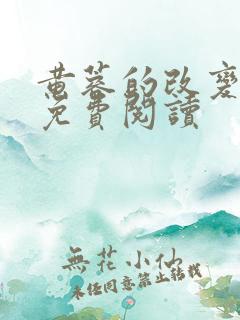 黄蓉的改變
免費閱讀
無花小仙
未经同意禁止转载